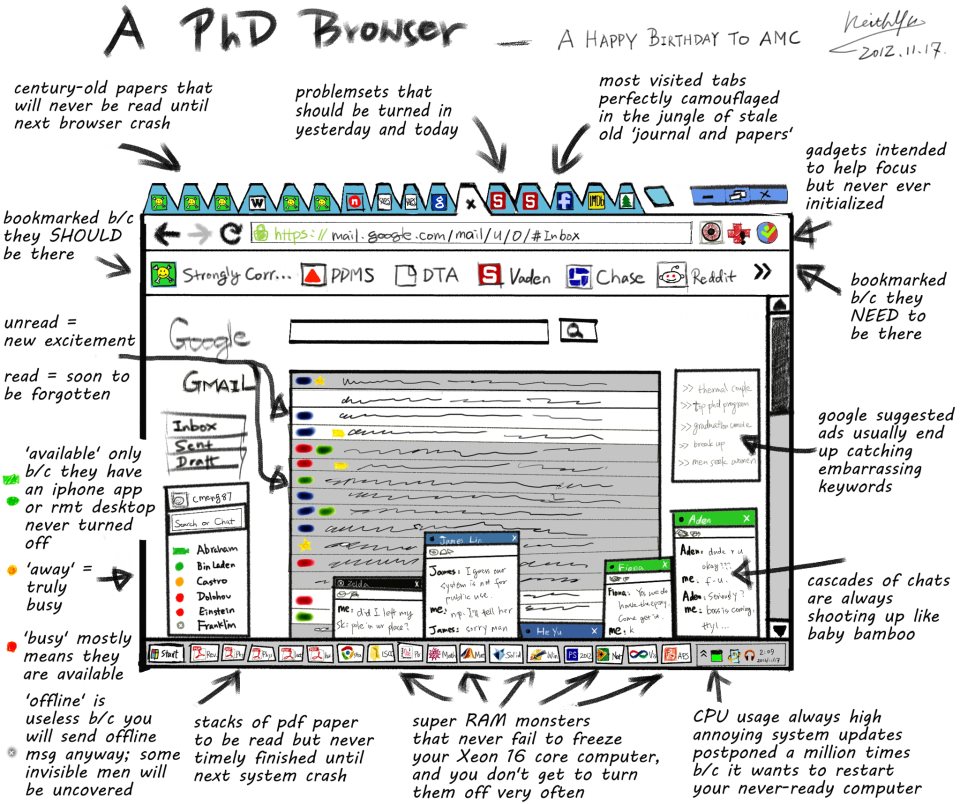 A PhD Browser — A Happy Birthday To AMC
2012.11.17.
century-old papers that
will never be read until
next browser crash
problemsets that
should be turned in
yesterday and today
most visited tabs
perfectly camouflaged
in the jungle of stale
old 'journal and papers'
gadgets intended
to help focus
but never ever
initialized
bookmarked b/c
they SHOULD
be there
W
n
g
x
S
S
f
IMDb
https://mail.google.com/mail/u/0/#Inbox
Strongly Corr... PDMS DTA Vaden Chase Reddit »
bookmarked
b/c they
NEED to
be there
unread =
new excitement
read = soon to
be forgotten
Google
GMAIL
Inbox
Sent
Draft
cmeng87
Search or Chat
Abraham
Bin Laden
Castro
Dolohov
Einstein
Franklin
>> thermal couple
>> top phd program
>> graduation candle
>> break up
>> men seek women
google suggested
ads usually end
up catching
embarrassing
keywords
'available' only
b/c they have
an iphone app
or rmt desktop
never turned
off
'away' =
truly
busy
'busy' mostly
means they
are available
'offline' is
useless b/c you
will send offline
msg anyway; some
invisible men will
be uncovered
Zelda
me: did I left my
Ski pole in ur place?
James Lin
James: I guess our
system is not for
public use.
me: np. I'll tell her
James: sorry man
He Yu
Fiona
Fiona: Yes we do
have the epoxy.
Come get it.
me: k
Aden
Aden: dude r u
okay???
me: f-u.
Aden: Seriously?
me: boss is coming.
ttyl...
cascades of chats
are always
shooting up like
baby bamboo
Start Rev Ph Pap Jac Jac Pho ISC Ps Math Ma Solid Win PS 2012 Net Vis AES 2:09
2012/11/17
stacks of pdf paper
to be read but never
timely finished until
next system crash
super RAM monsters
that never fail to freeze
your Xeon 16 core computer,
and you don't get to turn
them off very often
CPU usage always high
annoying system updates
postponed a million times
b/c it wants to restart
your never-ready computer